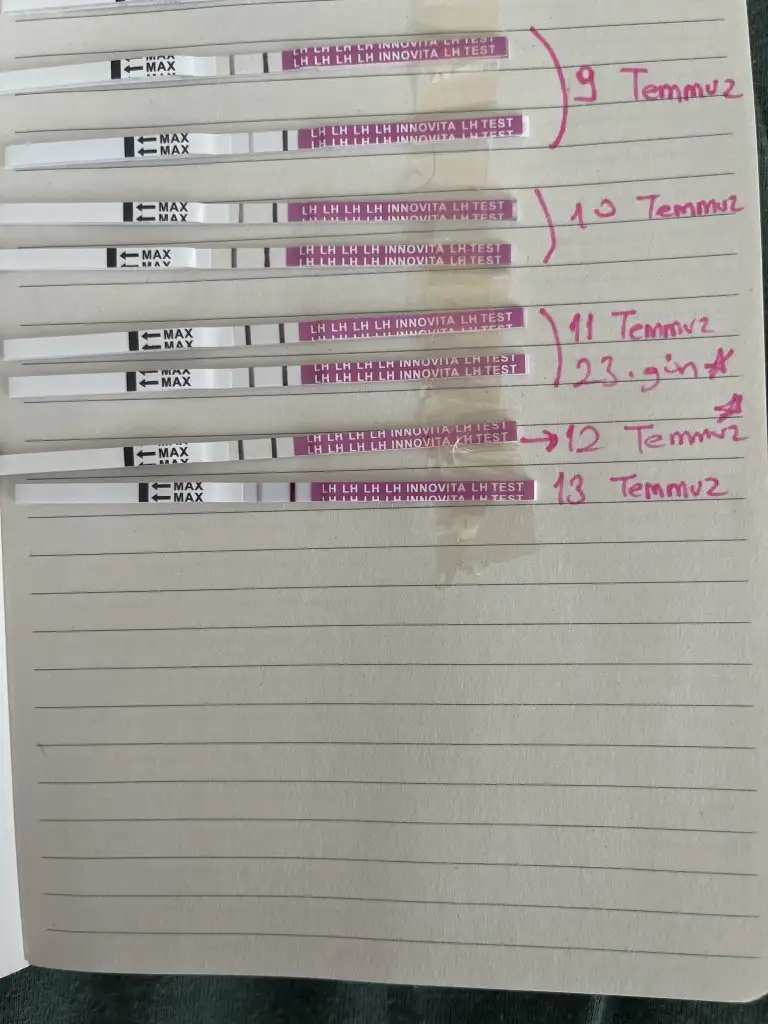 LH LH LH LH INNOVITA LH TEST
← MAX LH LH LH LH INNOVITA LH TEST
← MAX
9 Temmuz
← MAX LH LH LH LH INNOVITA LH TEST
← MAX LH LH LH LH INNOVITA LH TEST
← MAX LH LH LH LH INNOVITA LH TEST
← MAX LH LH LH LH INNOVITA LH TEST
10 Temmuz
← MAX LH LH LH LH INNOVITA LH TEST
← MAX LH LH LH LH INNOVITA LH TEST
← MAX LH LH LH LH INNOVITA LH TEST
← MAX LH LH LH LH INNOVITA LH TEST
11 Temmuz
← MAX LH LH LH LH INNOVITA LH TEST
← MAX LH LH LH LH INNOVITA LH TEST
23.gün
← MAX LH LH LH LH INNOVITA LH TEST
← MAX LH LH LH LH INNOVITA LH TEST
→ 12 Temmuz
← MAX
← MAX LH LH LH LH INNOVITA LH TEST
← MAX LH LH LH LH INNOVITA LH TEST
13 Temmuz